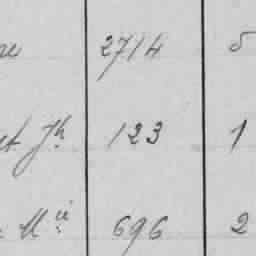 re 2714 5
et Jh 123 1
Mie 696 2